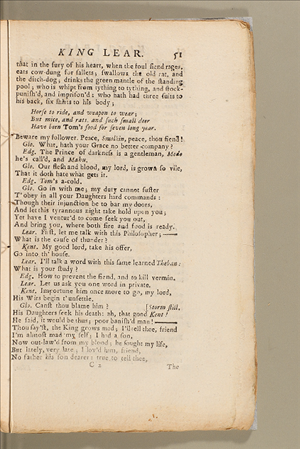 KING LEAR. 51
that in the fury of his heart, when the foul fiend rages,
eats cow-dung for sallets; swallows the old rat, and
the ditch-dog; drinks the green mantle of the standing
pool; who is whipt from tything to tything, and stock-
punish'd, and imprison'd: who hath had three suits to
his back, six shirts to his body;
Horse to ride, and weapon to wear;
But mice, and rats, and such small deer
Have been Tom's food for seven long year.
Beware my follower. Peace, Smulkin, peace, thou fiend!
Glo. What, hath your Grace no better company?
Edg. The Prince of darkness is a gentleman, Modo
he's call'd, and Mahu.
Glo. Our flesh and blood, my lord, is grown so vile,
That it doth hate what gets it.
Edg. Tom's a-cold.
Glo. Go in with me; my duty cannot suffer
T'obey in all your Daughters hard commands:
Though their injunction be to bar my doors,
And let this tyrannous night take hold upon you;
Yet have I ventur'd to come seek you out,
And bring you, where both fire and food is ready.
Lear. First, let me talk with this Philosopher;
What is the cause of thunder?
Kent. My good lord, take his offer,
Go into th' house.
Lear. I'll talk a word with this same learned Theban:
What is your study?
Edg. How to prevent the fiend, and to kill vermin.
Lear. Let us ask you one word in private.
Kent. Importune him once more to go, my lord,
His Wits begin t'unsettle.
Glo. Canst thou blame him? [Storm still.
His Daughters seek his death: ah, that good Kent!
He said, it would be thus; poor banish'd man!
Thou say'st, the King grows mad; I'll tell thee, friend
I'm almost mad my self; I had a son,
Now out-law'd from my blood; he sought my life,
But lately, very late; I lov'd him, friend,
No father his son dearer: true to tell thee,
C 2 The